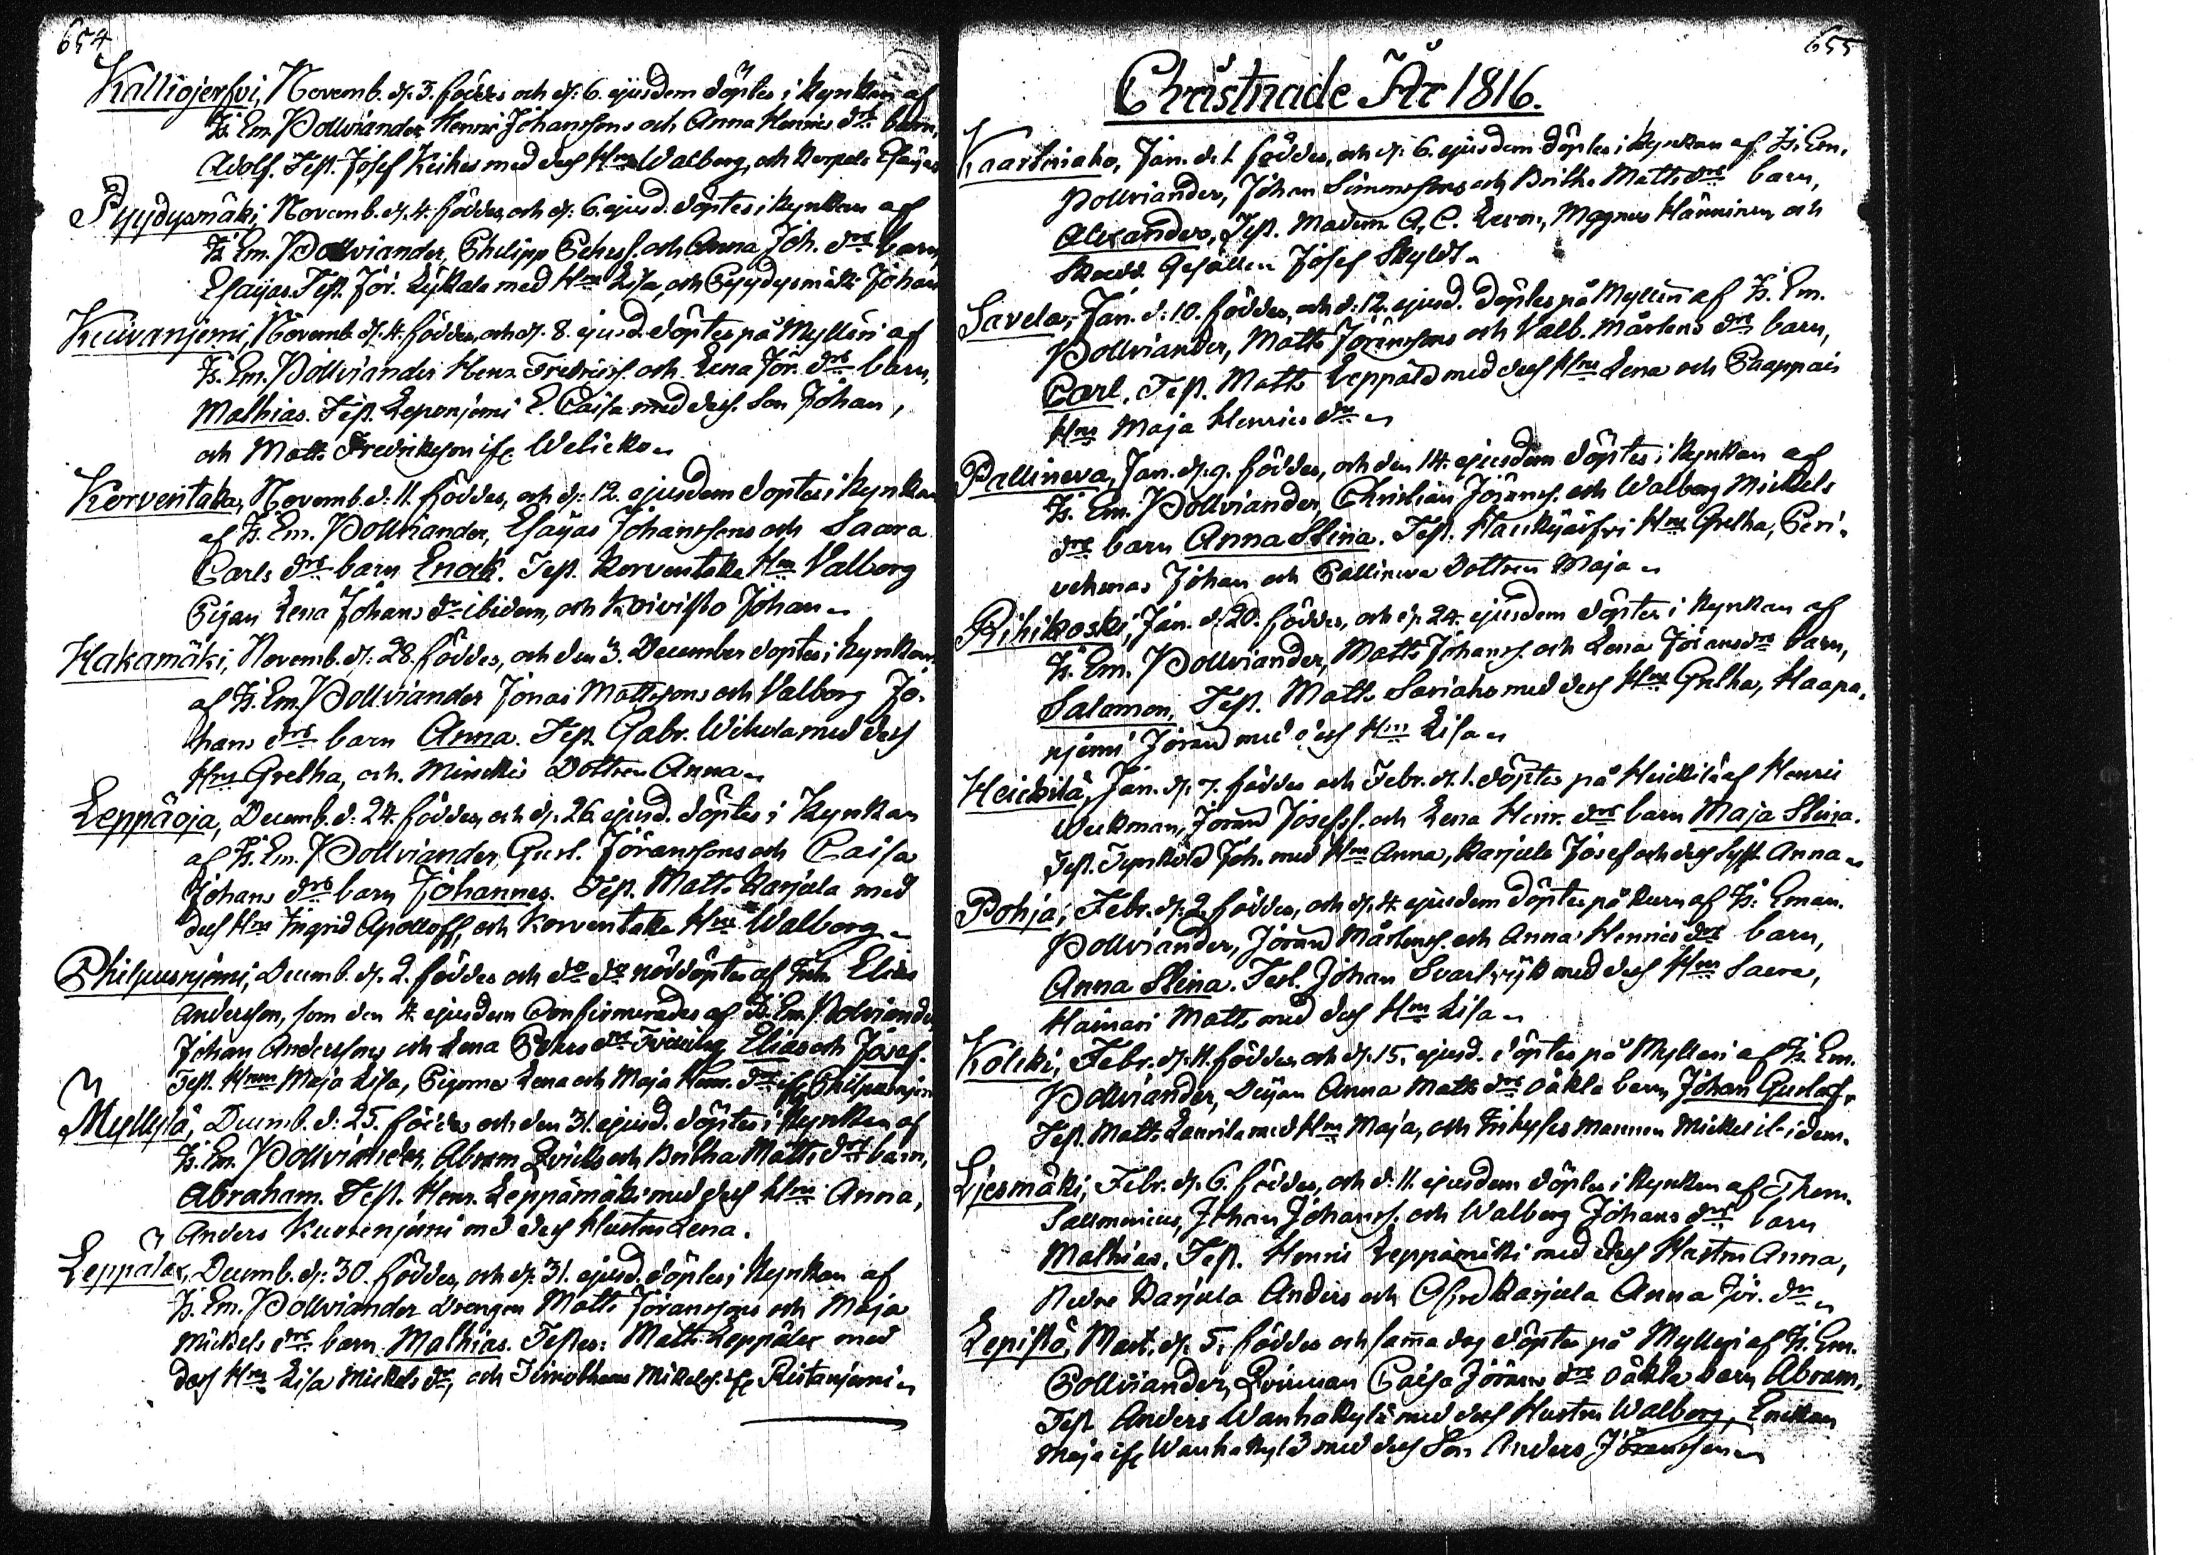 654
Kalliojerfvi, Novemb. d. 3. föddes och d. 6. ejusdem döptes i Kyrkan af
Hr. Em. Pollviander Henric Johanssons och Anna Henrics drs barn,
Adolf. Test. Josef Keikes med dess Hru Walborg, och Korpela Esaijas
Pyydysmäki, Novemb. d. 4. föddes, och d. 6. ejusd. döptes i Kyrkan af
Hr Em. Pollviander, Philipp Pehrss. och Anna Joh. drs barn,
Esaijas. Test. Jör. Lijkala med Hru Lisa, och Pyydysmäki Johan
Kuivanjemi, Novemb. d. 4. föddes, och d. 8. ejusd. döptes på Mylleri af
Hr. Em. Pollviander Henr. Fredricss. och Lena Jör. drs barn,
Mathias. Test. Leponjemi E. Caisa med dess Son Johan,
och Matts Fredriksson ifr. Welicko
Korventaka, Novemb. d. 11. föddes, och d. 12. ejusdem döptes i Kyrkan
af Hr. Em. Pollviander, Esaijas Johanssons och Saara
Carls drs barn Enock. Test. Korventaka Hru Valborg
Pigan Lena Johans dr ibidem, och Koivisto Johan
Hakamäki, Novemb. d. 28. föddes, och den 3. December döptes i Kyrkan
af Hr. Em. Pollviander Jonas Mattssons och Valborg Jo-
hans drs barn Anna. Test. Gabr. Wikola med dess
Hru Gretha, och Dottren Anna
Leppäoja, Decemb. d. 24. föddes, och d. 26 ejusd. döptes i Kyrkan
af Hr. Em. Pollviander, Gust. Jöranssons och Caisa
Johans drs barn Johannes. Test. Matts Karjula med
dess Hru Ingrid Apolloff, och Korventaka Hru Walborg
Philpusnjemi, Decemb. d. 2. föddes och do do nöddöptes af Elias
Andersson, som den 4. ejusdem Confirmerades af Hr. Em. Pollviander
Johan Anderssons och Lena Pehrs drs Tvilling Elias och Josef.
Test. Hrun Maja Lisa, Pigorna Lena och Maja Henr. dr ifr Philpusnjemi
Myllylä, Decemb. d. 25. föddes och den 31. ejusd. döptes i Kyrkan af
Hr. Em. Pollviander, Abram Qvicks och Britha Matts drs barn,
Abraham. Test. Henr. Leppämäki med dess Hru Anna,
Anders Kuorenjemi med dess Hustru Lena.
Leppälax, Decemb. d. 30. föddes, och d. 31. ejusd. döptes i Kyrkan af
Hr. Em. Pollviander Drengen Matts Jöranssons och Maja
Mickels drs barn Mathias. Testes: Matts Leppälax med
dess Hru Lisa Mickels dr, och Timotheus Mikelss. ifr Ristanjemi
655
Christnade År 1816.
Kaartinaho, Jan. d. 1. föddes, och d. 6. ejusdem döptes i Kyrkan af Hr. Em.
Pollviander, Johan Simonssons och Britha Matts drs barn,
Alexander, Test. Madem. A. C. Leron, Magnus Hänninen, och
Gesällen Josef Skyldt
Savela, Jan. d. 10. föddes, och d. 12. ejusd. döptes på Mylleri af Hr. Em.
Pollviander, Matts Jöranssons och Valb. Mårtens drs barn,
Carl. Test. Matts Leppälä med dess Hru Lena och Paappais
Hru Maja Henrics dr
Pallineva, Jan. d. 9. föddes, och den 14. ejusdem döptes i Kyrkan af
Hr. Em. Pollviander, Christian Jöranss. och Walborg Mickels
drs barn Anna Stina. Test. Haukijärfvi Hru Gretha, Peri-
vehmas Johan och Pallineva Dottren Maja
Riihikoski, Jan. d. 20. föddes, och d. 24. ejusdem döptes i Kyrkan af
Hr. Em. Pollviander, Matts Johanss. och Lena Jörans drs barn,
Salamon, Test. Matts Sariaho med dess Hru Gretha, Haapa-
njemi Jöran med dess Hru Lisa
Heickilä, Jan. d. 7. föddes och Febr. d. 1. döptes på Heickilä af Henric
Weckman, Jöran Josefss. och Lena Henr. drs barn Maja Stina.
Test. Joh. med Hru Anna, Karjula Josef och dess Syst. Anna
Pohja, Febr. d. 2. föddes, och d. 4. ejusdem döptes på Kurn af Hr. Eman.
Pollviander, Jöran Mårtenss. och Anna Henrics drs barn,
Anna Stina. Test. Johan Svartsjik med dess Hru Saara,
Hainari Matts med dess Hru Lisa
Kolcki, Febr. d. 11. föddes, och d. 15. ejusd. döptes på Mylleri af Hr. Em.
Pollviander, Deijan Anna Matts drs oäkta barn, Johan Gustaf.
Test. Matts Lanrila med Hru Maja, och mannen Mickel ibidem.
Ljesmäki, Febr. d. 6. föddes, och d. 11. ejusdem döptes i Kyrkan af Thom.
Sallmenius, Johan Johanss. och Walborg Johans drs barn
Mathias. Test. Henric Leppämäki med dess Hustru Anna,
Nedre Karjula Anders och Öfre Karjula Anna Jör. dr
Lepistö, Mart. d. 5. föddes och samma dag döptes på Mylleri af Hr. Em.
Pollviander, Qvinnan Caisa Jörans drs oäkta barn Abram.
Test Anders Wanhakylä med dess Hustru Walborg, Enckan
Maja ifr Wanhakylä med dess Son Anders Jöransson